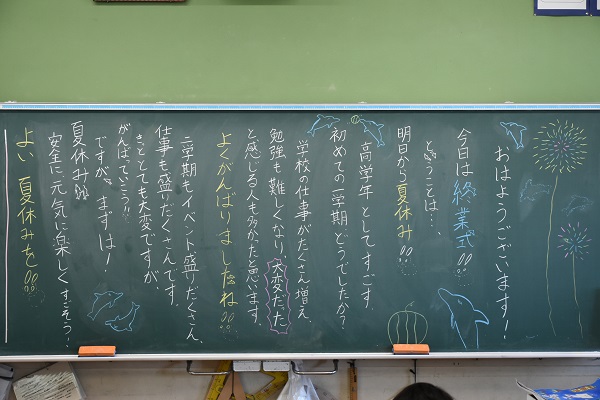 おはようございます!
今日は終業式!!
ということは・・・、
明日から夏休み!!
高学年としてすごす
初めての一学期どうでしたか?
学校の仕事がたくさん増え、
勉強も難しくなり、大変だった
と感じる人も多かったと思います。
よくがんばりましたね!!
二学期もイベント盛りだくさん、
仕事も盛りだくさんです。
とても大変ですが、
がんばっていこう!!
ですが、まずは!
夏休み!!
安全に元気に楽しくすごそう!
よい夏休みを!!